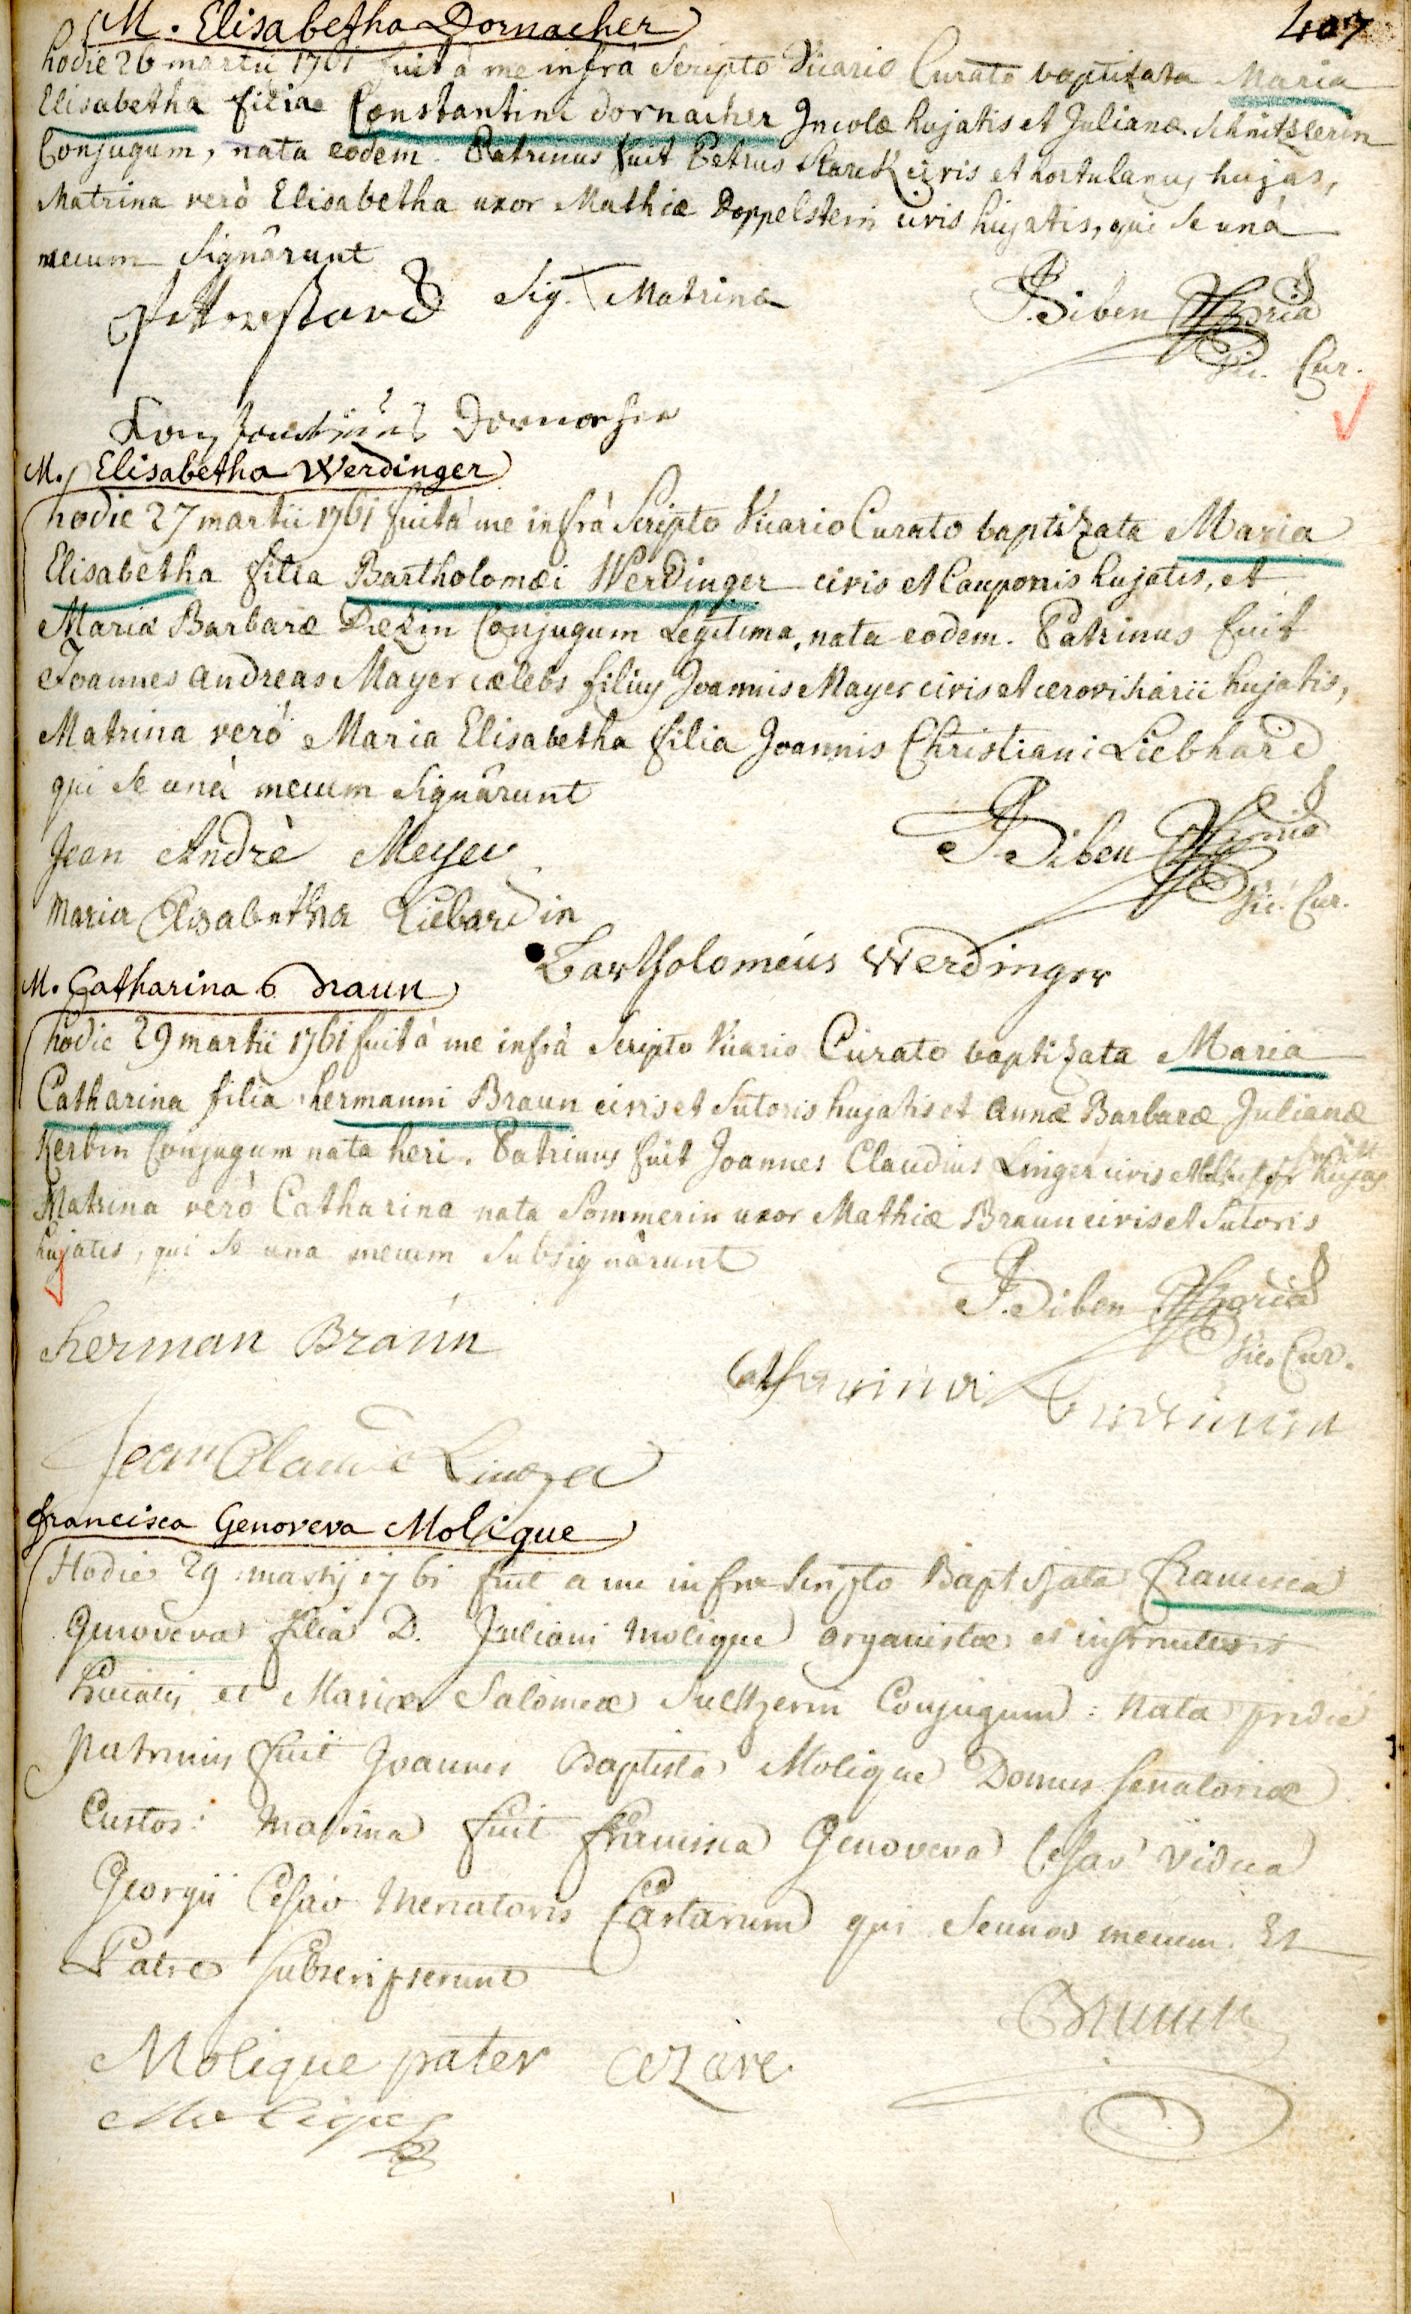 M. Elisabetha Dornacher
407
hodie 26 martii 1761 fuit à me infrà Scripto Vicario Curato baptizata Maria
Elisabetha filia Constantini Dornacher Incolæ hujatis et Julianæ Schnitzlerin
Conjugum, nata eodem. Patrinus fuit Petrus Starck civis et hortulanus hujas,
Matrina verò Elisabetha uxor Mathiæ Doppelstein civis hujatis, qui se unà
mecum signârunt
Sig. Matrinæ
P. Siben
Vic. Cur.
Dornacher
M. Elisabetha Werdinger
hodie 27 martii 1761 fuit à me infrà Scripto Vicario Curato baptizata Maria
Elisabetha filia Bartholomæi Werdinger civis et Cauponis hujatis, et
Mariæ Barbaræ Diezin Conjugum Legitima, nata eodem. Patrinus fuit
Joannes Andreas Mayer cælebs filius Joannis Mayer civis et cerevisiarii hujatis,
Matrina verò Maria Elisabetha filia Joannis Christiani Liebhard
qui se unà mecum signârunt
Jean Andrè Meyer
P. Siben
Vic. Cur.
Maria Elisabetha Liebardin
Bartholomeus Werdinger
M. Catharina Braun
hodie 29 martii 1761 fuit à me infrà Scripto Vicario Curato baptizata Maria
Catharina filia hermanni Braun civis et Sutoris hujatis et Annæ Barbaræ Julianæ
Kerbin Conjugum nata heri. Patrinus fuit Joannes Claudius Linger civis et hujas
Matrina verò Catharina nata Sommerin uxor Mathiæ Braun civis et Sutoris
hujatis, qui se una mecum subsignârunt
P. Siben
Vic. Cur.
herman Braun
Catharina
Jean Claude
Francisca Genoveva Molique
Hodie 29 martij 1761 fuit a me infra scripto Baptizata Francisca
Genoveva filia D. Juliani Molique organistæ et instructoris
et Mariæ Salomeæ Sultzerin Conjugum: Nata pridie
Patrinus fuit Joannes Baptista Molique Domus senatoriæ
Custos: Matrina fuit Francisca Genoveva Cesar vidua
Georgii Cesar Mercatoris Cartarum qui mecum Et
Patre subscripserunt
Molique pater
cezare
Molique